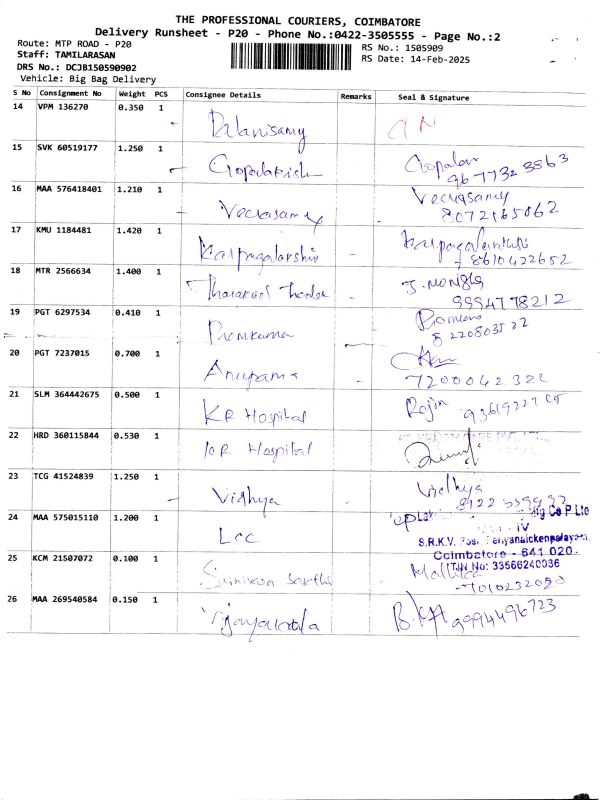 THE PROFESSIONAL COURIERS, COIMBATORE
Delivery Runsheet - P20 - Phone No.:0422-3505555 - Page No.:2
Route: MTP ROAD - P20
RS No.: 1505909
Staff: TAMILARASAN
RS Date: 14-Feb-2025
DRS No.: DCJB150590902
Vehicle: Big Bag Delivery
S No Consignment No Weight PCS Consignee Details Remarks Seal & Signature
14 VPM 136270 0.350 1 Palanisamy
15 SVK 60519177 1.250 1 Gopalakish Gopalan
16 MAA 576418401 1.210 1 Veerasamy Veerasamy
8072165062
17 KMU 1184481 1.420 1
8610422652
18 MTR 2566634 1.400 1
9994778212
19 PGT 6297534 0.410 1 Premkuma
20 PGT 7237015 0.700 1 Anupama
7200042322
21 SLM 364442675 0.500 1 KR Hospital Rajin
22 HRD 360115844 0.530 1 KR Hospital
23 TCG 41524839 1.250 1 Vidhya Vidhya
24 MAA 575015110 1.200 1 Lcc
IV
S.R.K.V. Post
Coimbatore - 641 020.
TIN No: 33566240036
25 KCM 21507072 0.100 1
26 MAA 269540584 0.150 1 9994496723